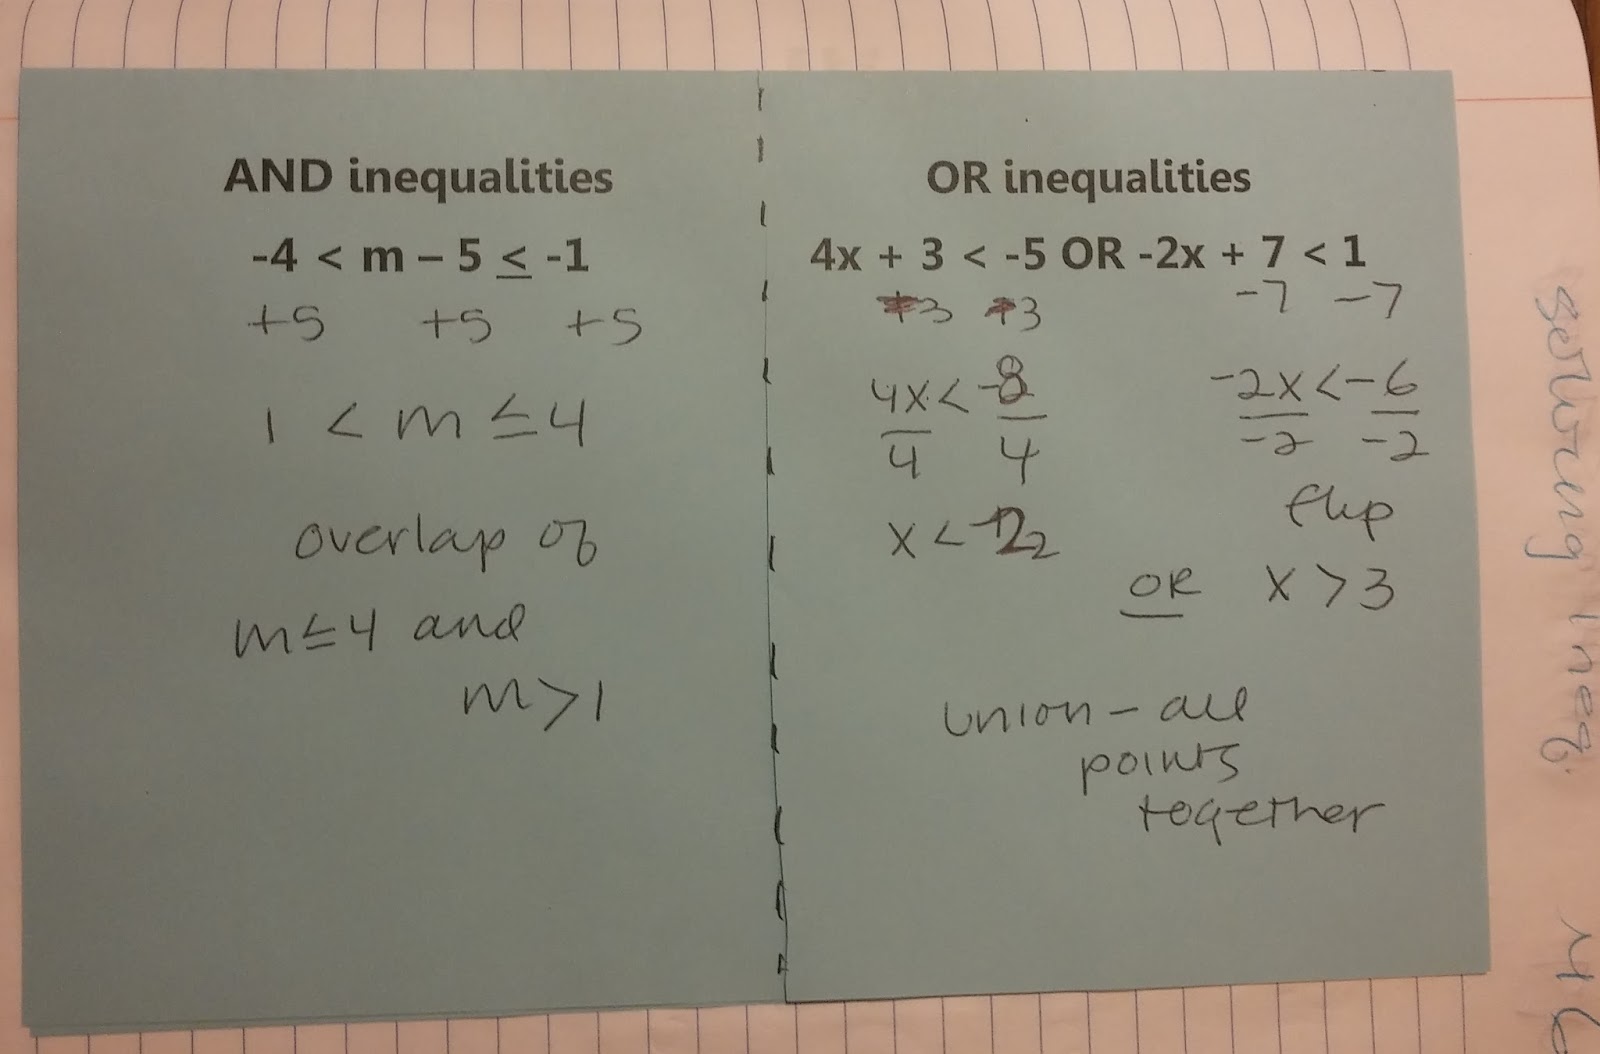 AND inequalities
-4 < m – 5 ≤ -1
+5 +5 +5
1 < m ≤ 4
overlap of
m ≤ 4 and
m > 1
OR inequalities
4x + 3 < -5 OR -2x + 7 < 1
-3 -3 -7 -7
4x < -8 -2x < -6
4 4 -2 -2
flip
x < -2
OR x > 3
union – all
points
together
Solving Ineq.